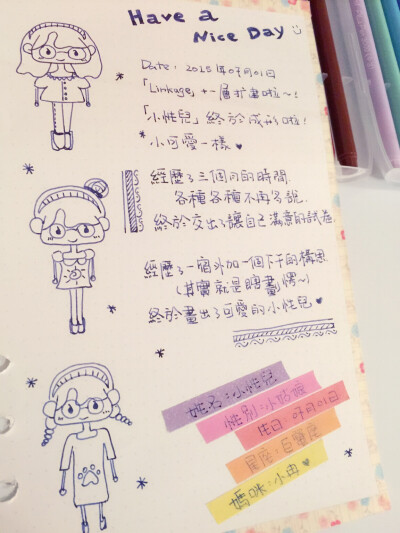 Have a
Nice Day
Date: 2015年07月01日
「Linkage」十一層擴電啦~!
「小性兒」終於成形啦!
小可愛一樣♥
經歷了三個月的時間
各種各種不再多說
終於交出了讓自己滿意的試卷
經歷了一宿外加一個下午的構思
(其實就是瞎畫愣~)
終於畫出了可愛的小性兒♥
姓名:小性兒
性別:小姑娘
生日:07月01日
星座:巨蟹座
媽咪:小冉♥